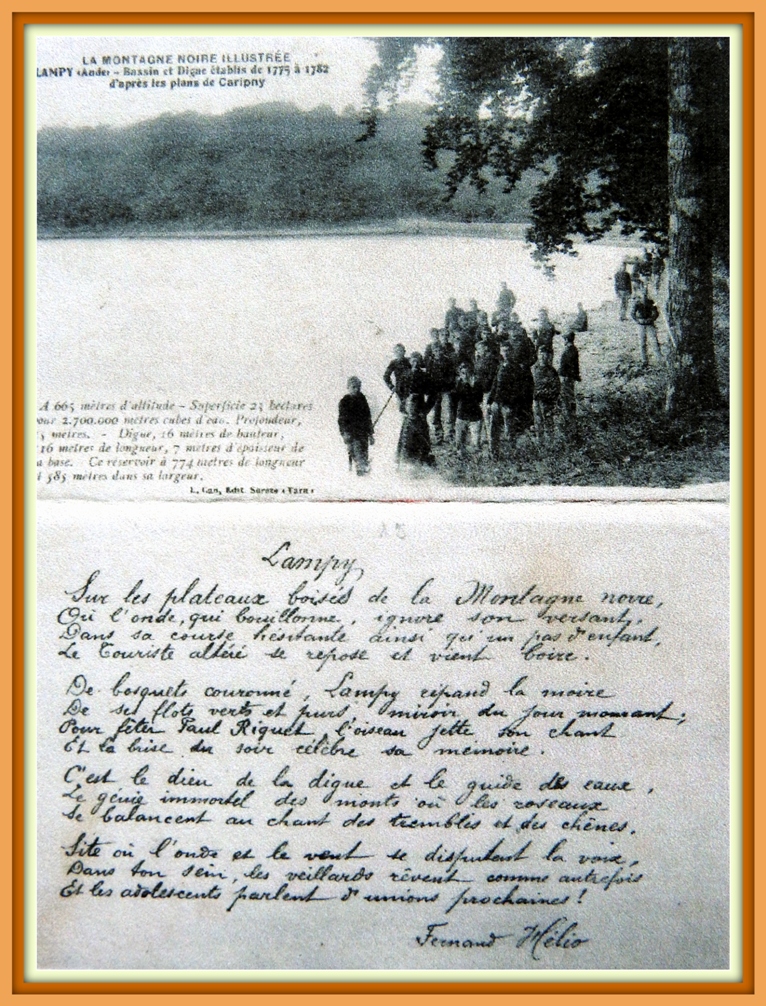 LA MONTAGNE NOIRE ILLUSTRÉE
LAMPY (Aude) - Bassin et Digue établis de 1775 à 1782
d'après les plans de Caripny
A 665 mètres d'altitude - Superficie 23 hectares
pour 2.700.000 mètres cubes d'eau. Profondeur,
mètres. - Digue, 16 mètres de hauteur,
116 mètres de longueur, 7 mètres d'épaisseur de
la base. Ce réservoir à 774 mètres de longueur
et 385 mètres dans sa largeur.
Edit. Sorèze (Tarn)
Lampy
Sur les plateaux boisés de la Montagne noire,
Où l'onde, qui bouillonne, ignore son versant,
Dans sa course hésitante ainsi qu'un pas d'enfant,
Le Touriste altéré se repose et vient boire.
De bosquets couronné, Lampy répand la moire
De ses flots verts et purs, miroir du jour mourant;
Pour fêter Paul Riquet, l'oiseau jette son chant
Et la brise du soir célèbre sa mémoire.
C'est le dieu de la digue et le guide des eaux,
Le génie immortel des monts où les roseaux
Se balancent au chant des trembles et des chênes.
Site où l'onde et le vent se disputent la voix,
Dans ton sein, les veillards rêvent comme autrefois
Et les adolescents parlent d'unions prochaines!
Fernand Hélio